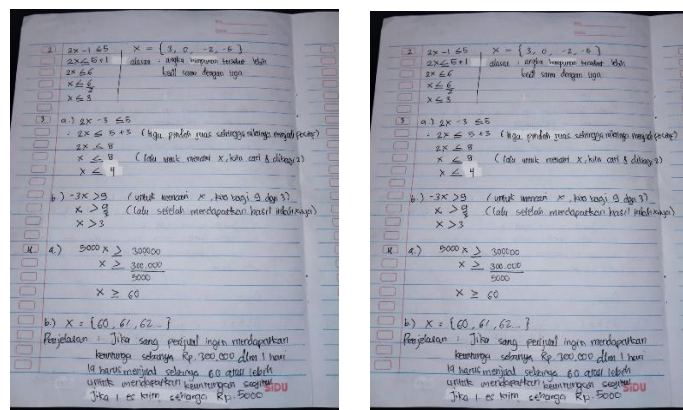 2. 2x - 1 ≤ 5 x = { 3, 0, -2, -5 }
2x ≤ 5 + 1 alasan : angka himpunan tersebut lebih
2x ≤ 6 kecil sama dengan tiga
x ≤ 6/2
x ≤ 3
3 a.) 2x - 3 ≤ 5
2x ≤ 5 + 3 (tiga pindah ruas sehingga nilainya menjadi
2x ≤ 8
x ≤ 8 (lalu untuk mencari x, kita cari 8 dibagi 2)
x ≤ 4
b.) -3x > 9 (untuk mencari x, bagi 9 dgn 3)
x > 9/3 (lalu setelah mendapatkan hasil
x > 3
4. a.) 5000 x ≥ 300000
x ≥ 300.000
5000
x ≥ 60
b.) x = { 60, 61, 62... }
Penjelasan : Jika sang penjual ingin mendapatkan
sebanyak Rp. 300.000 dlm 1 hari
Ia harus menjual sebanyak 60 atau lebih
untuk mendapatkan keuntungan
SiDU
Jika 1 es krim seharga Rp. 5000
2. 2x - 1 ≤ 5 x = { 3, 0, -2, -5 }
2x ≤ 5 + 1 alasan : angka himpunan tersebut lebih
2x ≤ 6 kecil sama dengan tiga
x ≤ 6/2
x ≤ 3
3 a.) 2x - 3 ≤ 5
2x ≤ 5 + 3 (tiga pindah ruas sehingga nilainya menjadi
2x ≤ 8
x ≤ 8 (lalu untuk mencari x, kita cari 8 dibagi 2)
x ≤ 4
b.) -3x > 9 (untuk mencari x, bagi 9 dgn 3)
x > 9/3 (lalu setelah mendapatkan hasil
x > 3
4. a.) 5000 x ≥ 300000
x ≥ 300.000
5000
x ≥ 60
b.) x = { 60, 61, 62... }
Penjelasan : Jika sang penjual ingin mendapatkan
sebanyak Rp. 300.000 dlm 1 hari
Ia harus menjual sebanyak 60 atau lebih
untuk mendapatkan keuntungan
SiDU
Jika 1 es krim seharga Rp. 5000